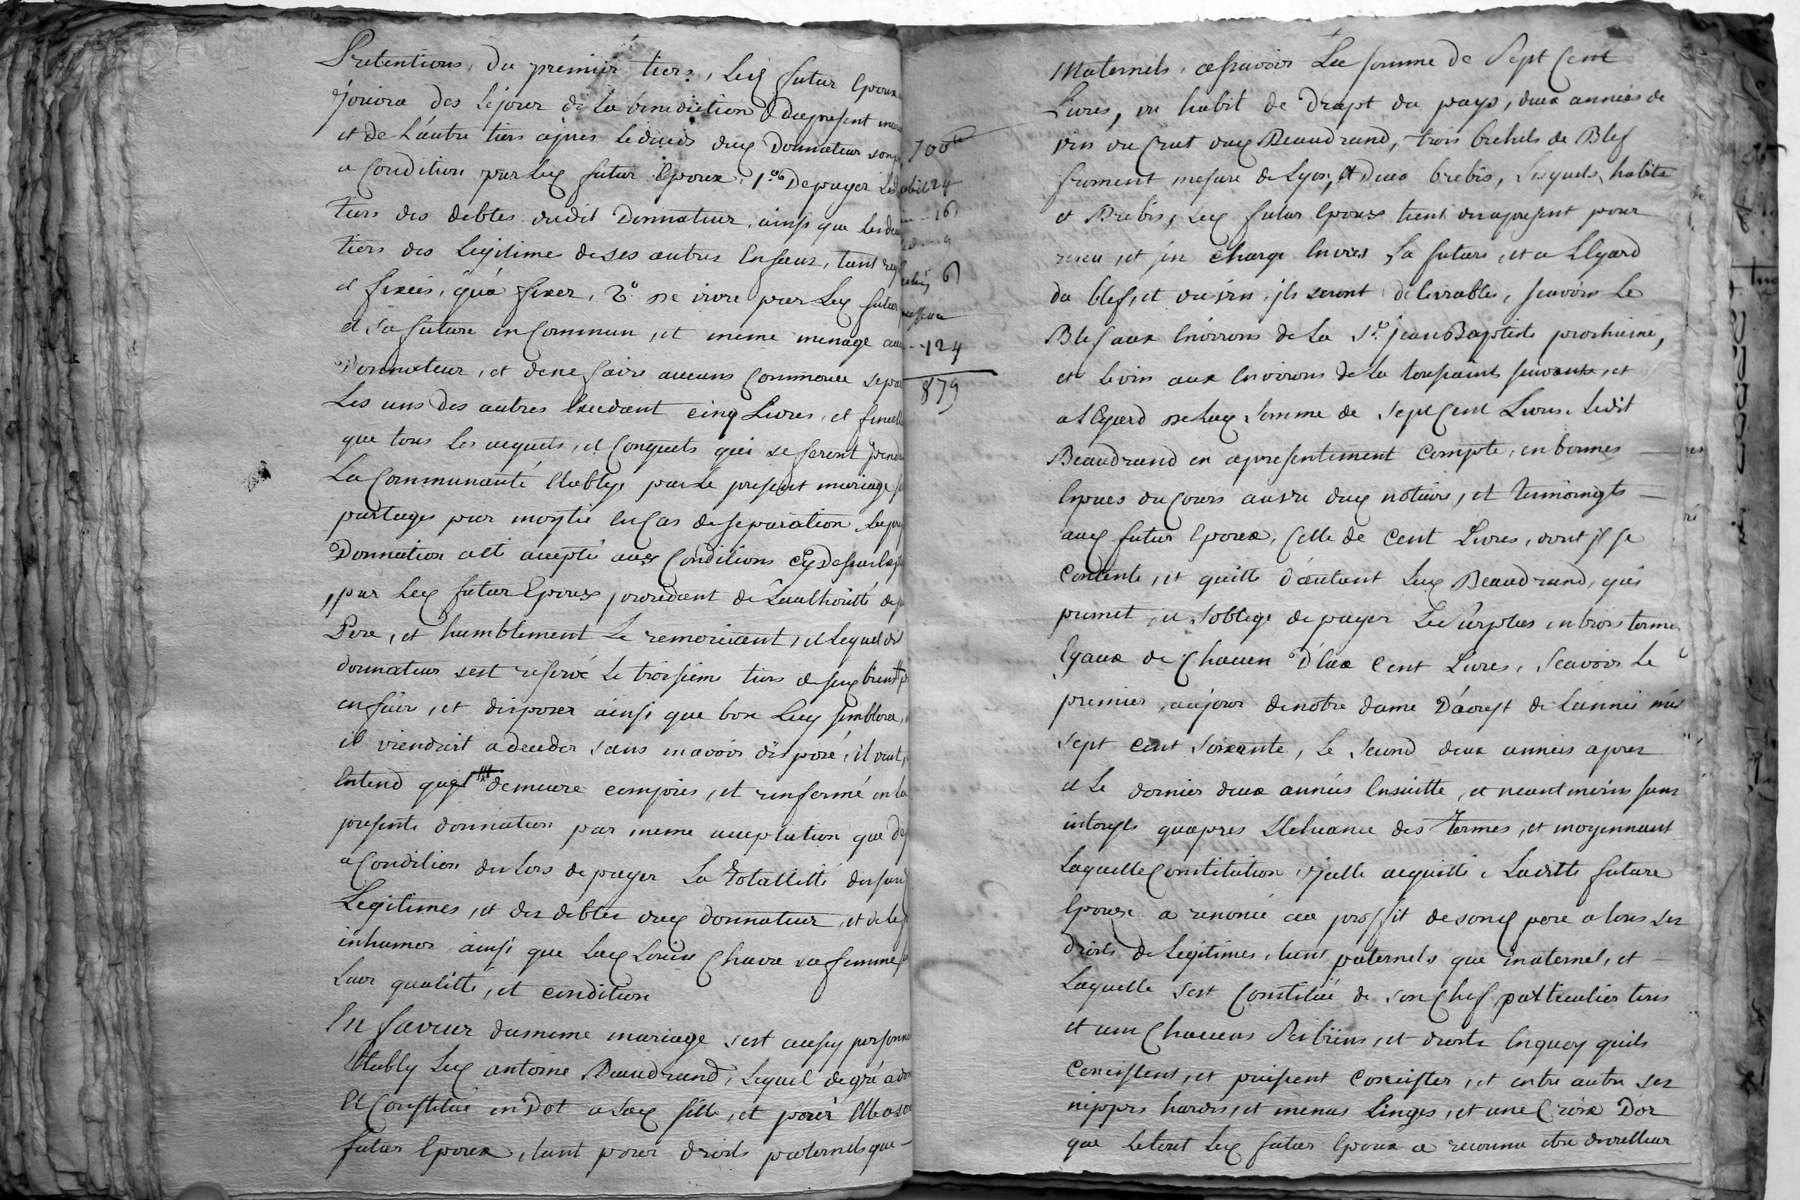 Pretentions, du premier tiers, led. futur Epoux
jouira des le jour de la benediction du present
et de L'autre tiers apres le deceds dud. Donnateur son
a Condition par led. futur Epoux 1°. De payer les
tiers des debtes dudit Donnateur, ainsi que les deux
tiers des Legitimes de ses autres Enfans, tant
et fixées, qu'a fixer, 2°. de vivre par led. futur
et sa future en Commun, et meme menage avec
Donnateur, et de ne faire aucuns Commerce separé
Les uns des autres Excedant cinq Livres, et
que tous les acquets, et Conquets qui se feront pend
La Communauté Etablye par le present mariage
partagés par moytié en Cas de separation
Donnation a été accepté aux Conditions cy Dessus
par led. futur Epoux procedant de L'authorité de
Pere, et humblement Le remerciant, et lequel dit
donnateur s'est reservé Le troisieme tiers de ses biens p
en faire, et disposer ainsi que bon Luy semblera,
il viendroit a deceder sans en avoir disposé, il veut,
Entend que demeure compris, et renfermé en la
presente donnation par meme acceptation que
a Condition du Lors de payer La Totallité
Legitimes, et des debtes dud. donnateur, et de le
inhumer ainsi que Lad. Chava sa femme
Leur qualitté, et condition
En faveur du meme mariage s'est aussy personn
Etably Led. antoine Beaudrand, Lequel de gré a
Et Constitué en Dot a sad. fille, et pour Elle a son
futur Epoux, tant pour droits paternels que
700 tt
habit 24
16)
6)
124
879
Maternels, a sçavoir La somme de Sept Cent
Livres, un habit de Drapt du pays, deux années de
vin du Crut dud. Beaudrand, trois bichets de Blef
froment mesure de Lyon, et deux brebis, Lesquels habits
et Brebis, Led. futur Epoux tient du apresent pour
receu, et s'en Charge Envers La future, et a L'Egard
du blef, et du vin, ils seront delivrables, scavoir Le
Blef aux Environs de La St. Jean Baptiste prochaine,
et le vin aux Environs de La toussaint suivante, et
a L'Egard de Lad. somme de sept Cent Livres, Ledit
Beaudrand en a presentement Compté, en bonnes
Especes du Cours au vu dud. notaire, et temoingts
aud. futur Epoux, Celle de Cent Livres, dont il se
Contente, et quitte d'autant Led. Beaudrand, qui
promet, et s'oblige de payer Le surplus en trois termes
Egaux de Chacun Deux Cent Livres, scavoir Le
premier, au jour de notre dame D'aoust de L'année mil
sept cent soixante, Le second deux années apres
et Le dernier deux années Ensuitte, et neantmoins sans
interests qu'apres L'Echeance des Termes, et moyennant
Laquelle Constitution, icelle acquitté, Laditte future
Epouse a renoncé au proffit de sond. pere a tous ses
droits de Legitimes, tant paternels que maternel, et
Laquelle s'est Constitué de son Chef particulier tous
et uns Chacuns ses biens, et droits En quoy qu'ils
Consistent, et puissent Consister, et entre autre ses
nippes hardes, et menus Linges, et une Croix D'or
que Le tout Led. futur Epoux a reconnu etre de valleur